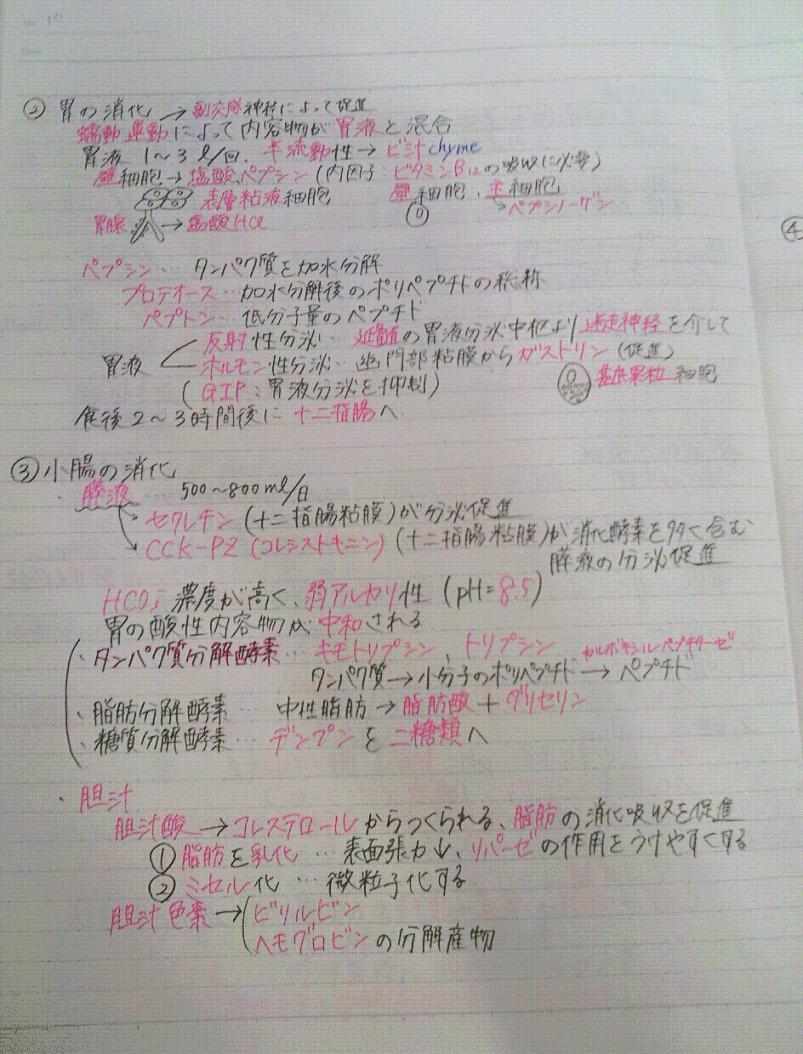 No. 10
② 胃の消化 → 副交感神経によって促進
蠕動運動によって内容物が胃液と混合
胃液 1～3ℓ/回. 半流動性→ビ汁chyme
壁細胞→塩酸、ペプシン (内因子:ビタミンB12の吸収に必要)
表層粘液細胞 壁細胞、主細胞
胃腺 → 塩酸HCl →ペプシノーゲン
④
ペプシン… タンパク質を加水分解
プロテオース… 加水分解後のポリペプチドの総称
ペプトン… 低分子量のペプチド
胃液 反射性分泌… 延髄の胃液分泌中枢より迷走神経を介して
ホルモン性分泌… 幽門部粘膜からガストリン (促進)
(GIP:胃液分泌を抑制) 基底果粒細胞
食後2～3時間後に十二指腸へ
③ 小腸の消化
・膵液 … 500～800ml/日
→ セクレチン (十二指腸粘膜)が分泌促進
→ CCK-PZ (コレシストキニン) (十二指腸粘膜)が消化酵素を多く含む
膵液の分泌促進
HCO₃⁻ 濃度が高く、弱アルカリ性 (pH=8.5)
胃の酸性内容物が中和される
・タンパク質分解酵素… キモトリプシン、トリプシン カルボキシルペプチターゼ
タンパク質→小分子のポリペプチド→ペプチド
・脂肪分解酵素… 中性脂肪→脂肪酸+グリセリン
・糖質分解酵素… デンプンを二糖類へ
・胆汁
胆汁酸→コレステロールからつくられる、脂肪の消化吸収を促進
① 脂肪を乳化… 表面張力↓、リパーゼの作用をうけやすくする
② ミセル化… 微粒子化する
胆汁色素→ビリルビン
ヘモグロビンの分解産物